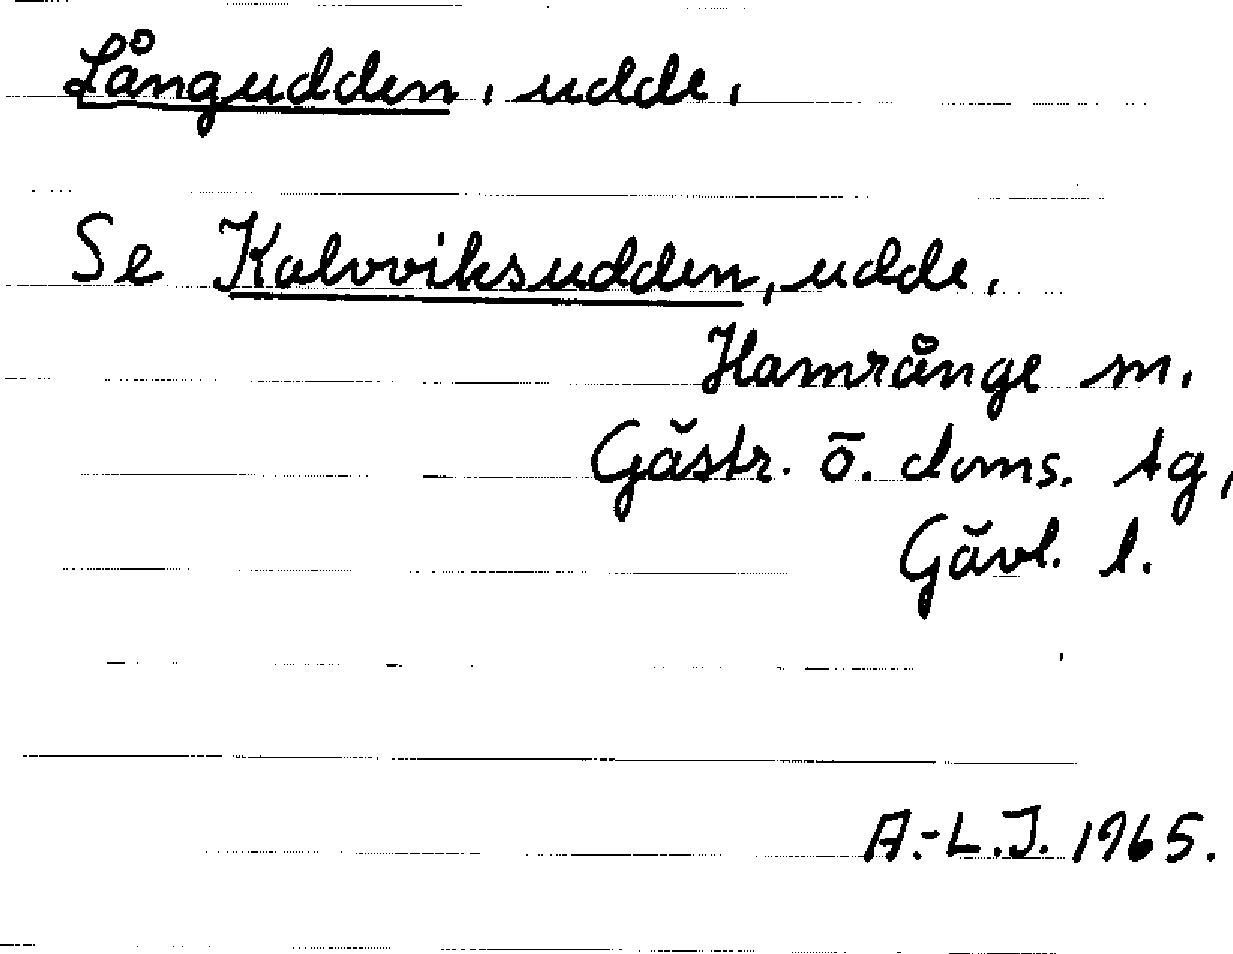 Långudden, udde,
Se Kalvviksudden, udde,
Hamrånge sn.
Gästr. ö. doms. tg,
Gävl. l.
A.-L.J. 1965.